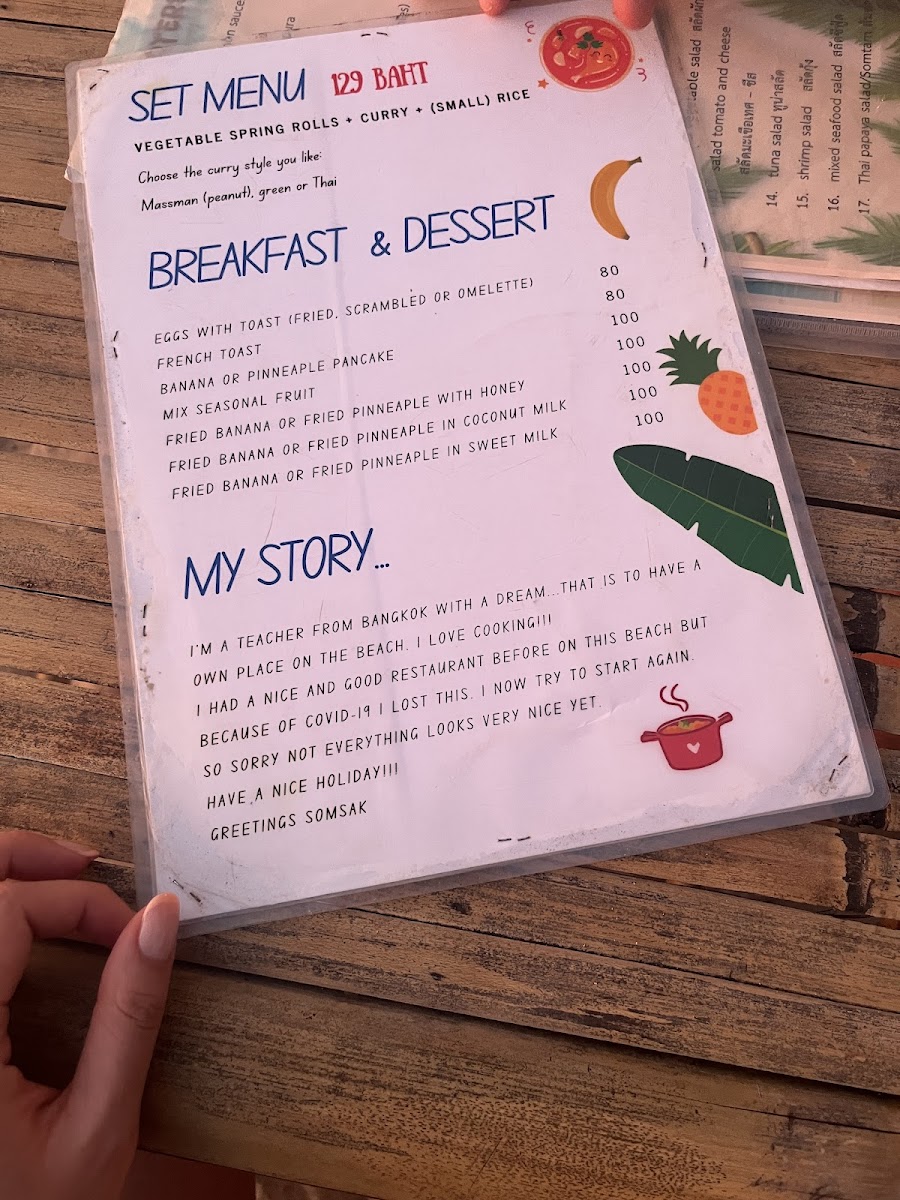 SET MENU 129 BAHT
VEGETABLE SPRING ROLLS + CURRY + (SMALL) RICE
Choose the curry style you like:
Massman (peanut), green or Thai
BREAKFAST & DESSERT
EGGS WITH TOAST (FRIED, SCRAMBLED OR OMELETTE) 80
FRENCH TOAST 80
BANANA OR PINNEAPLE PANCAKE 100
MIX SEASONAL FRUIT 100
FRIED BANANA OR FRIED PINNEAPLE WITH HONEY 100
FRIED BANANA OR FRIED PINNEAPLE IN COCONUT MILK 100
FRIED BANANA OR FRIED PINNEAPLE IN SWEET MILK 100
MY STORY...
I'M A TEACHER FROM BANGKOK WITH A DREAM...THAT IS TO HAVE A
OWN PLACE ON THE BEACH. I LOVE COOKING!!!
I HAD A NICE AND GOOD RESTAURANT BEFORE ON THIS BEACH BUT
BECAUSE OF COVID-19 I LOST THIS. I NOW TRY TO START AGAIN.
SO SORRY NOT EVERYTHING LOOKS VERY NICE YET.
HAVE A NICE HOLIDAY!!!
GREETINGS SOMSAK
salad
salad tomato and cheese
สลัดมะเขือเทศ - ชีส
14. tuna salad ทูน่าสลัด
15. shrimp salad สลัดกุ้ง
16. mixed seafood salad
17. Thai papaya salad/Somtam